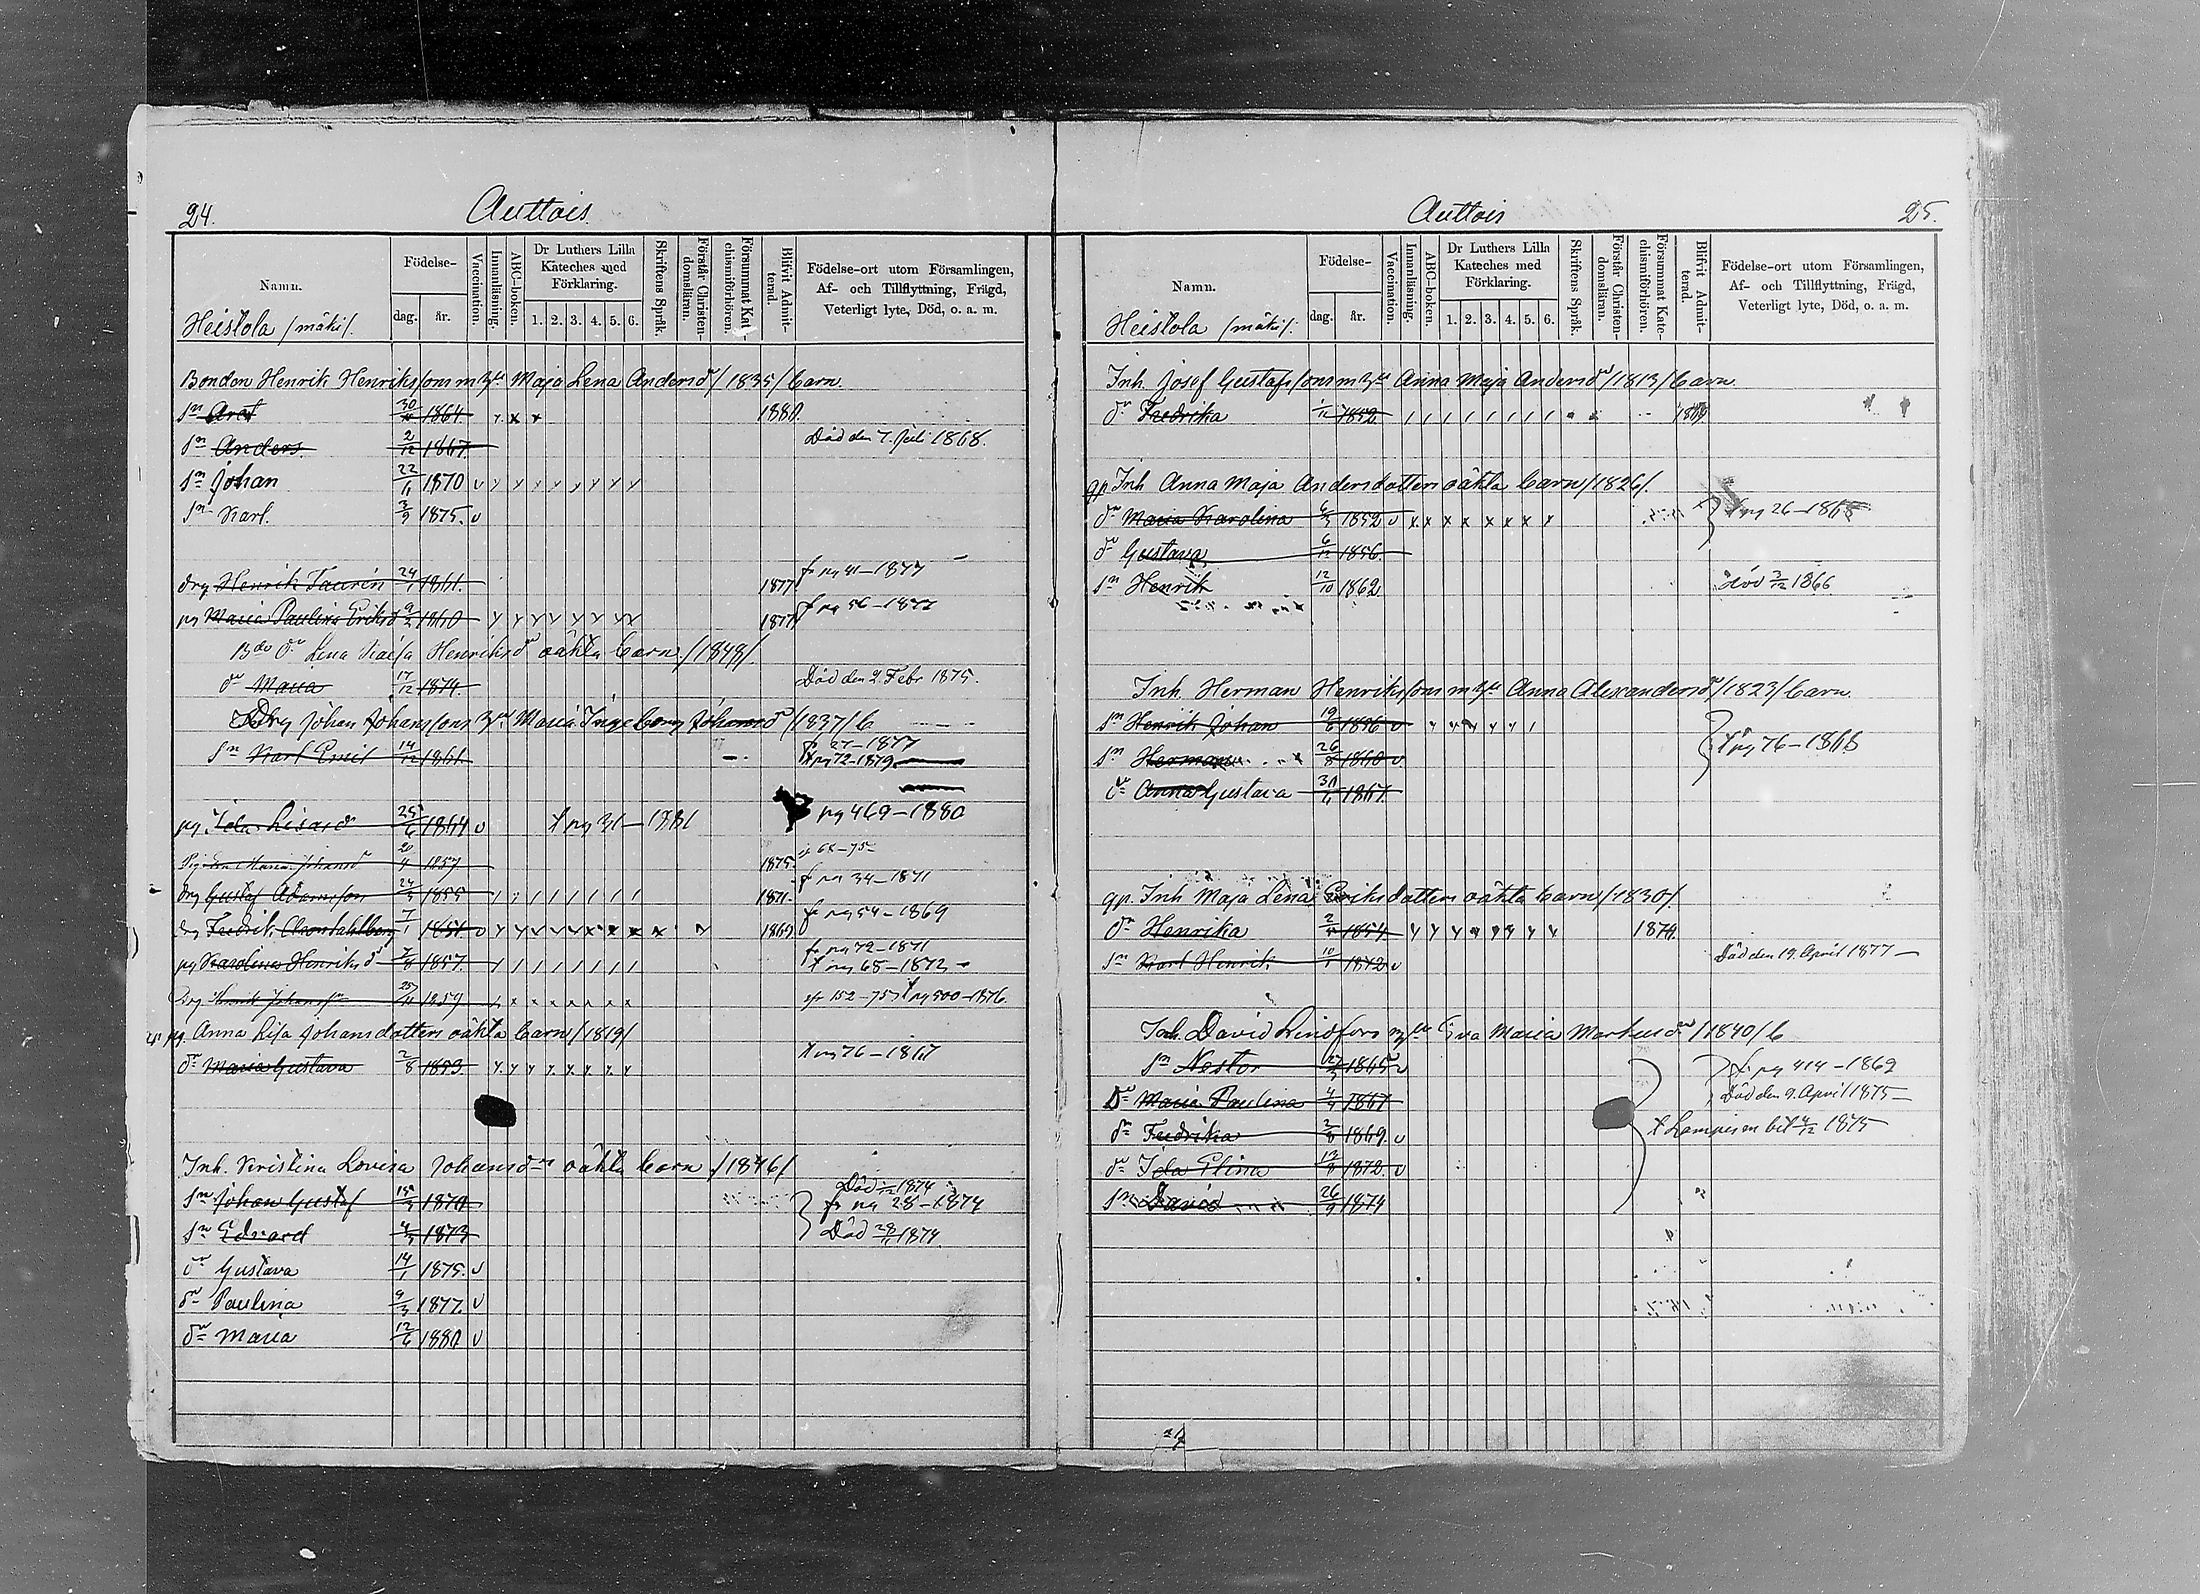 24.
Auttois.
Namn.
Födelse-
dag.
år.
Vaccination.
Innanläsning.
ABC-boken.
Dr Luthers Lilla
Kateches med
Förklaring.
1. 2. 3. 4. 5. 6.
Skriftens Språk.
Förstår Christen-
domsläran.
Försummat Kat-
chismiförhören.
Blifvit Admit-
terad.
Födelse-ort utom Församlingen,
Af- och Tillflyttning, Frägd,
Veterligt lyte, Död, o. a. m.
Heistola /mäki/.
Bonden Henrik Henrikssons m hu Maja Lena Andersdr /1835/ barn.
sn 1864 1880
sn Anders 2/12 1867 Död den 7. Juli 1868.
sn Johan 22/11 1870 v
sn Karl. 3/9 1875. v
drg Henrik Taurén 1861. 1877 fr pg 41–1877
pg Maria Paulina Eriksdr 9/2 1860 1877 fr pg 56–1877
Lena Kaisa Henriksdr oäkta barn /1849/.
dr Maria 17/12 1874. Död den 2. Febr 1875.
Drg Johan Johanssons hu Maria Ingeborg Johansdr /1837/ b
sn Karl Emil 14/12 1861 fr 27–1877
t pg 72–1879
pg Ida Lisa dr 25/6 1864 v t pg 31–1881 pg 469–1880
Maria Johansd 20/4 1857 1875.
drg Gustaf Adamsson 24/3 1855 1871. fr pg 34–1871
drg Fredrik 1851 v 1869 fr pg 54–1869
pg Karolina Henriksd 1857. fr pg 72–1871
t pg 65–1872
Drg Henrik Johanss 25/11 1859 152–75 t pg 500–1876.
pg. Anna Lisa Johansdotters oäkta barn /1819/
dr Maria Gustava 2/8 1853 t pg 76–1867
Inh. Kristina Lovisa Johansdrs oäkta barn /1846/
sn Johan Gustaf 15/3 1870 Död 1874
fr pg 28–1874
sn Edvard 4/3 1873 Död 1874.
dr Gustava 14/1 1875. v
dr Paulina 9/3 1877. v
dr Maria 12/6 1880 v
25.
Auttois
Namn.
Födelse-
dag.
år.
Vaccination.
Innanläsning.
ABC-boken.
Dr Luthers Lilla
Kateches med
Förklaring.
1. 2. 3. 4. 5. 6.
Skriftens Språk.
Förstår Christen-
domsläran.
Försummat Kate-
chismiförhören.
Blifvit Admit-
terad.
Födelse-ort utom Församlingen,
Af- och Tillflyttning, Frägd,
Veterligt lyte, Död, o. a. m.
Heistola /mäki/.
Inh. Josef Gustafssons m hu Anna Maja Andersdr /1813/ barn.
dr Fredrika 1852
gp Inh Anna Maja Andersdotters oäkta barn /1826/.
dr Maria Karolina 1852 v pg 26–1868
dr Gustava 6/12 1856.
sn Henrik 12/10 1862 Död 3/12 1866
Inh. Herman Henrikssons m hu Anna Alexandersdr /1823/ barn.
sn Henrik Johan 19/6 1856 v t pg 76–1868
sn Herman 26/8 1860 v.
dr Anna Gustava 1861
gp. Inh Maja Lena Eriksdotters oäkta barn /1830/.
dr Henrika 1854 1874.
sn Karl Henrik 10/1 1872 v Död den 19. April 1877
Inh. David Lindfors m hu Eva Maria Markusdr /1840/ b
sn Nestor 27/3 1865 v fr pg 414–1869
Dr Maria Paulina 1867 Död den 9. April 1875
dr Fredrika 2/8 1869. v t Lampis m bet 4/12 1875
dr Ida Elina 1872. v
sn David 26/9 1874